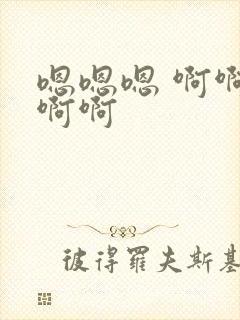 嗯嗯嗯 啊啊
啊啊
彼得罗夫斯基